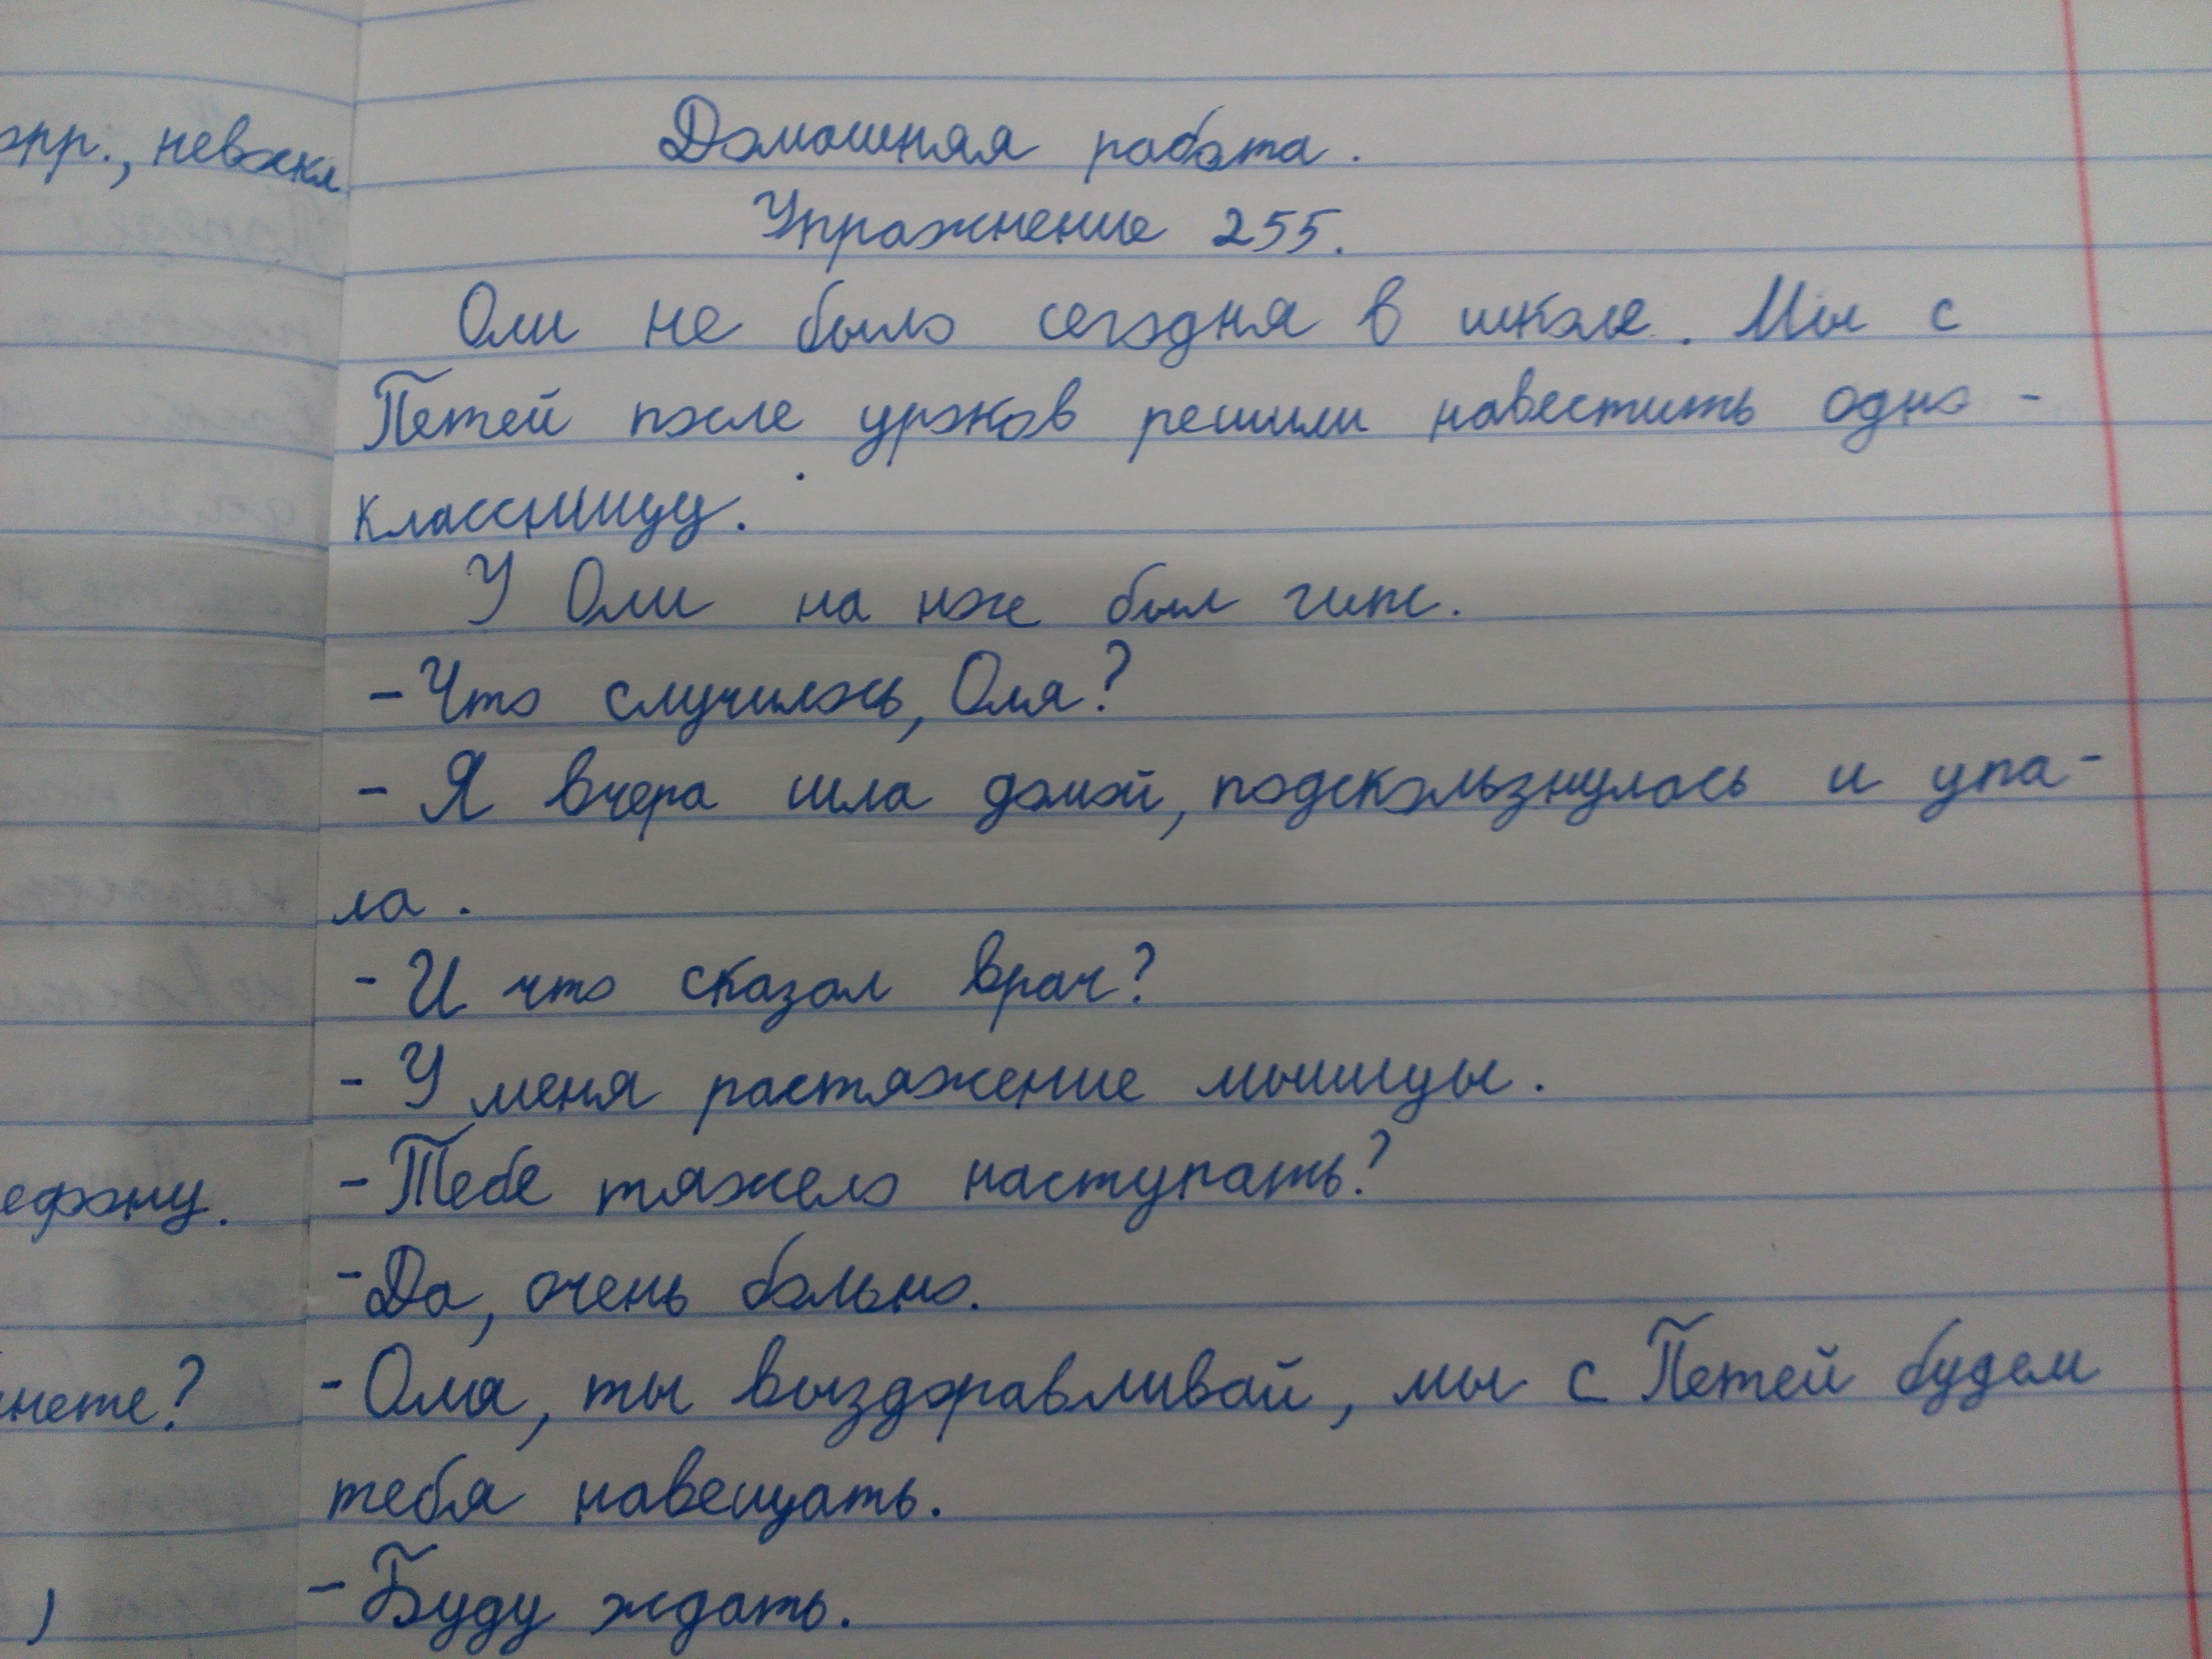 опр., невоскл.
Домашняя работа.
Упражнение 255.
Оли не было сегодня в школе. Мы с
Петей после уроков решили навестить одно-
классницу.
У Оли на ноге был гипс.
- Что случилось, Оля?
- Я вчера шла домой, подскользнулась и упа-
ла.
- И что сказал врач?
- У меня растяжение мышцы.
- Тебе тяжело наступать?
ефону.
- Да, очень больно.
- Оля, ты выздоравливай, мы с Петей будем
нете?
тебя навещать.
- Буду ждать.